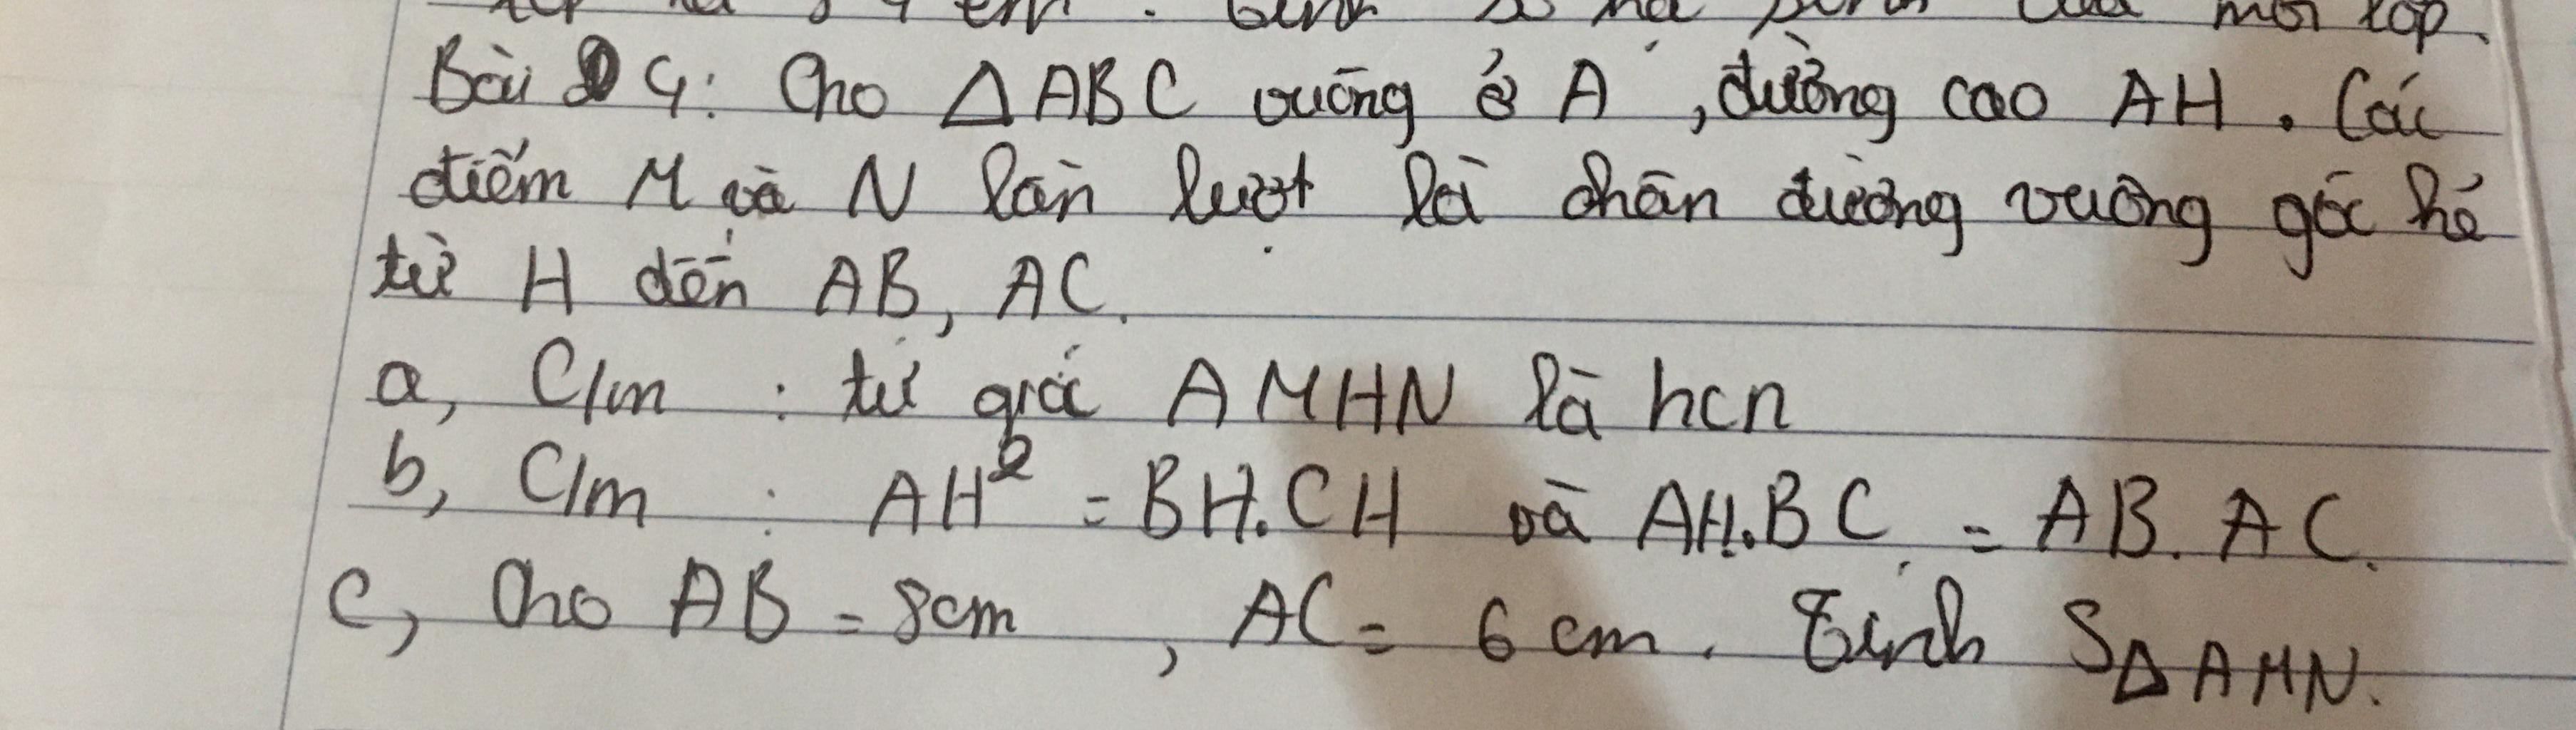 Bài 4: Cho △ABC vuông ở A, đường cao AH. Các
điểm M và N lần lượt là chân đường vuông góc kẻ
từ H đến AB, AC.
a, C/m : tứ giác AMHN là hcn
b, C/m : AH² = BH.CH và AH.BC = AB.AC.
c, Cho AB = 8cm, AC = 6cm. Tính S△AMN.